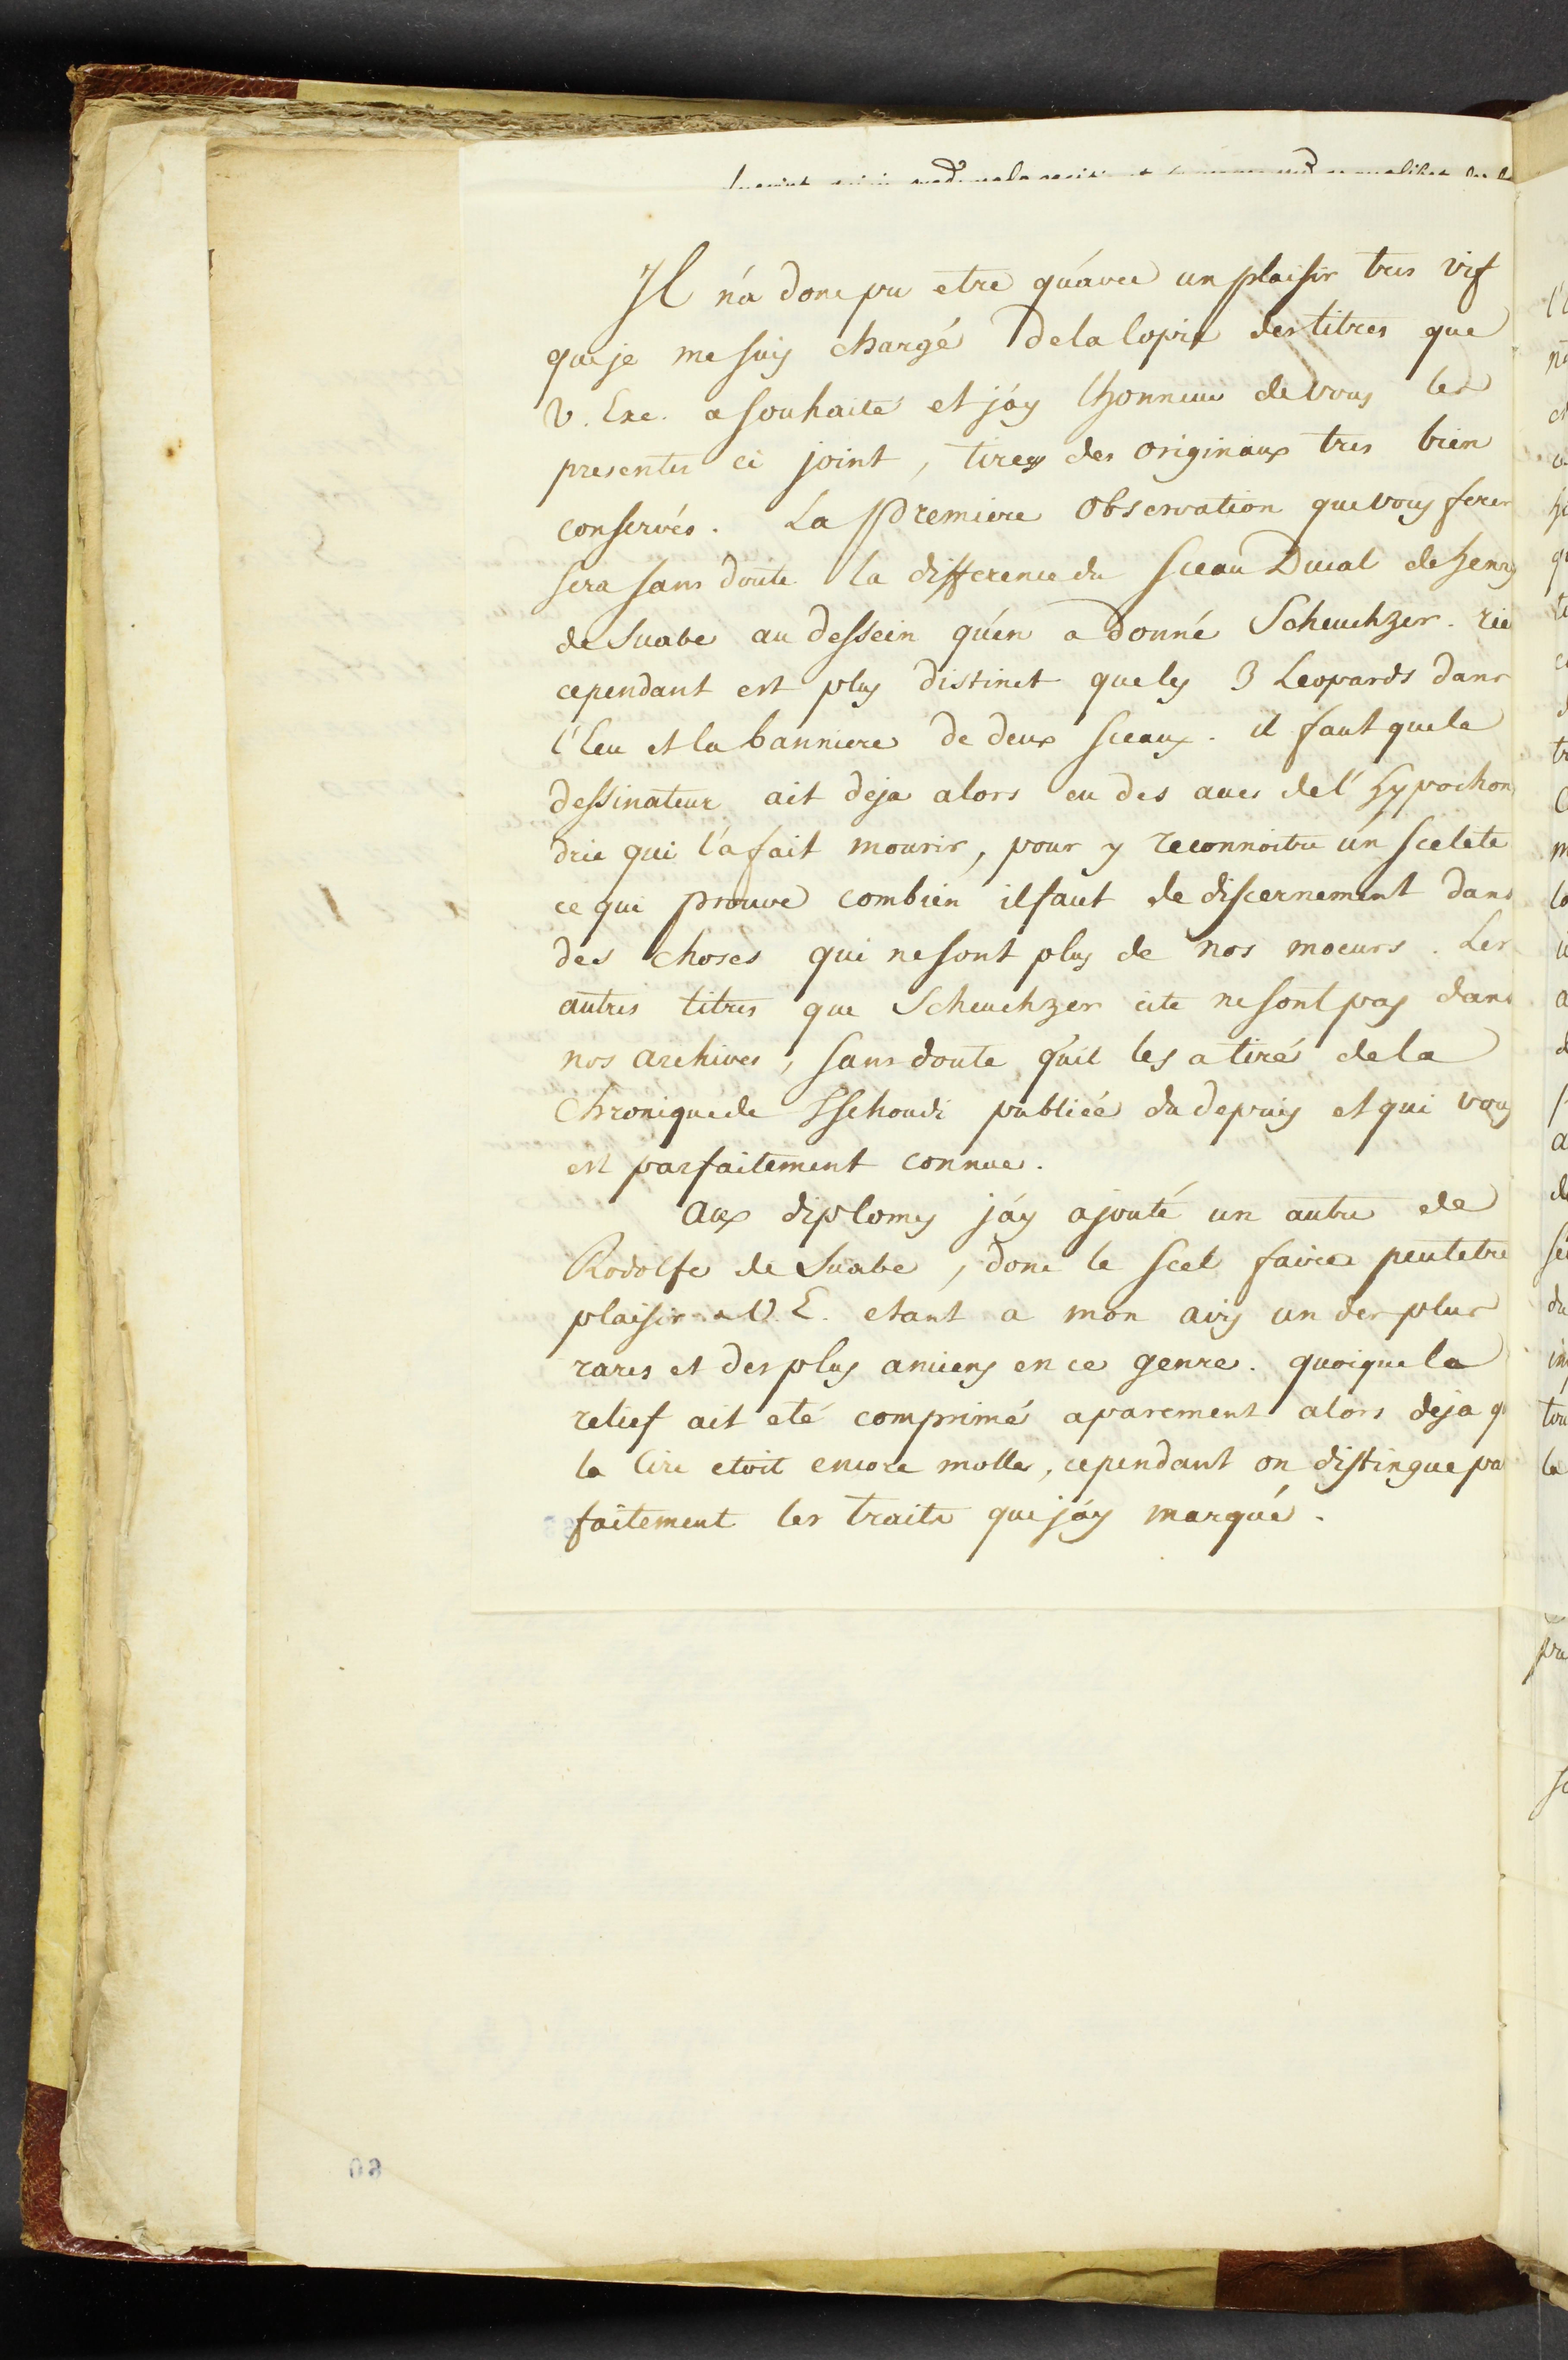 Il n'a donc pu etre qu'avec un plaisir tres vif
que je me suis chargé de la copie des titres que
V. Exc. a souhaité et j'ay l'honneur de vous les
presenter ci joint, tirez des originaux tres bien
conservés. La premiere observation que vous ferez
sera sans doute la difference du sceau Ducal de henry
de Suabe au dessein qu'en a donné Scheuchzer. rie
cependant est plus distinct que les 3 Leopards dans
l'Ecu et la banniere de deux sceaux. il faut que le
dessinateur ait deja alors eu des acces de l'hypochon
drie qui l'a fait mourir, pour y reconnoitre un scelete
ce qui prouve combien il faut de discernement dans
des choses qui ne sont plus de nos moeurs. Les
autres titres que Scheuchzer cite ne sont pas dans
nos archives, sans doute qu'il les a tiré de la
Chronique de Tschoudi publiée du depuis et qui vous
est parfaitement connue.
Aux diplomes j'ay ajouté un autre de
Rodolfe de Suabe, donc le scel faira peutetre
plaisir a V. E. etant a mon avis un des plus
rares et des plus anciens en ce genre. quoique le
relief ait eté comprimé aparement alors deja q
la Cire etoit encore molle, cependant on distingue pa
faitement les traits que j'ay marqué.
60